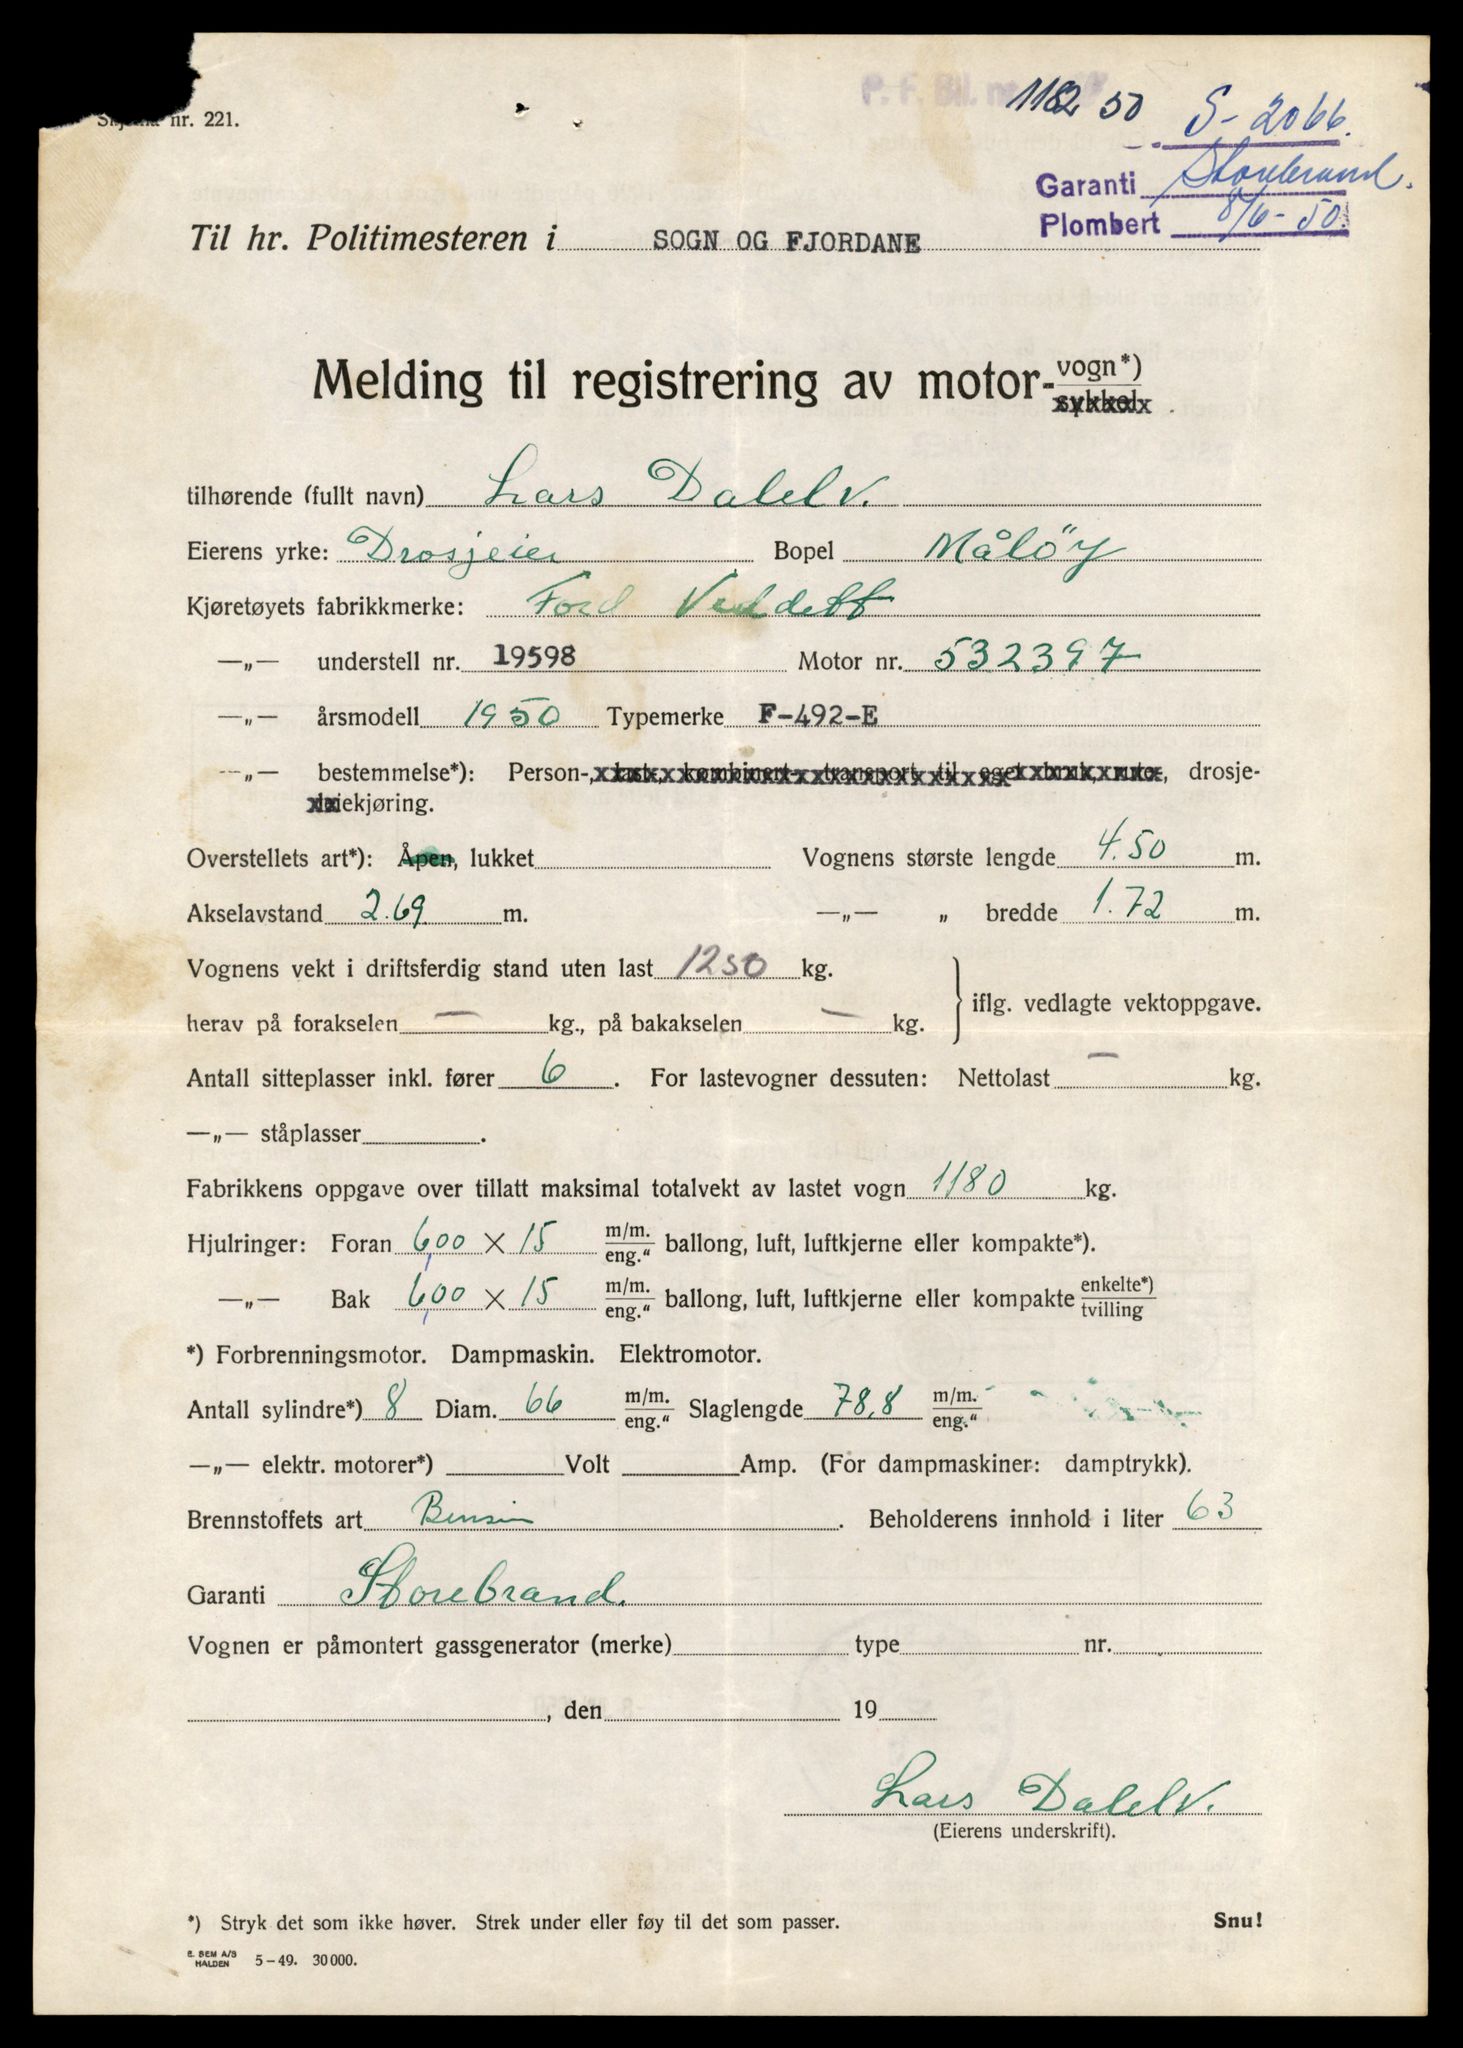 P. F. Bil. nr. 1182 50
S-2066.
Skjema nr. 221.
Garanti Storebrand.
Plombert 8/6-50.
Til hr. Politimesteren i SOGN OG FJORDANE
Melding til registrering av motor-vogn*)
sykkel.
tilhørende (fullt navn) Lars Dalelv.
Eierens yrke: Drosjeier Bopel Målöy
Kjøretøyets fabrikkmerke: Ford Veddett
—„— understell nr. 19598 Motor nr. 532397
—„— årsmodell 1950 Typemerke F-492-E
—„— bestemmelse*): Person-, last-, kombinert- transport til eget bruk, rute-, drosje-
leiekjøring.
Overstellets art*): Åpen, lukket Vognens største lengde 4.50 m.
Akselavstand 2.69 m. —„— „ bredde 1.72 m.
Vognens vekt i driftsferdig stand uten last 1250 kg.
herav på forakselen — kg., på bakakselen — kg. } iflg. vedlagte vektoppgave.
Antall sitteplasser inkl. fører 6. For lastevogner dessuten: Nettolast — kg.
—„— ståplasser .
Fabrikkens oppgave over tillatt maksimal totalvekt av lastet vogn 1180 kg.
Hjulringer: Foran 6,00 × 15 m/m. eng.“ ballong, luft, luftkjerne eller kompakte*).
—„— Bak 6,00 × 15 m/m. eng.“ ballong, luft, luftkjerne eller kompakte enkelte*) tvilling
*) Forbrenningsmotor. Dampmaskin. Elektromotor.
Antall sylindre*) 8 Diam. 66 m/m. eng.“ Slaglengde 78,8 m/m. eng.“
—„— elektr. motorer*) Volt Amp. (For dampmaskiner: damptrykk).
Brennstoffets art Bensin . Beholderens innhold i liter 63
Garanti Storebrand.
Vognen er påmontert gassgenerator (merke) type nr.
, den 19
Lars Dalelv.
(Eierens underskrift).
*) Stryk det som ikke høver. Strek under eller føy til det som passer. Snu!
E. SEM A/S
HALDEN 5-49. 30 000.